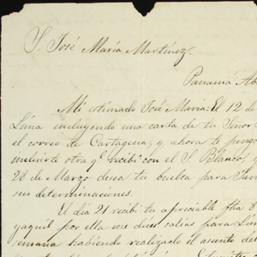 S. José María Martinez.
Panama Ab
Mi estimado José María: El 12 de
Lima incluyendo una carta de tu Señor
el correo de Cartagena; y ahora te pongo
incluirte otra q̃ recibí con el S. Blanco, y
28 de Marzo desea tu buelta para
sus determinaciones.
El dia 21 recibí tu apreciable fha 8
yaquil por ella veo
semana habiendo realizado el asunto de